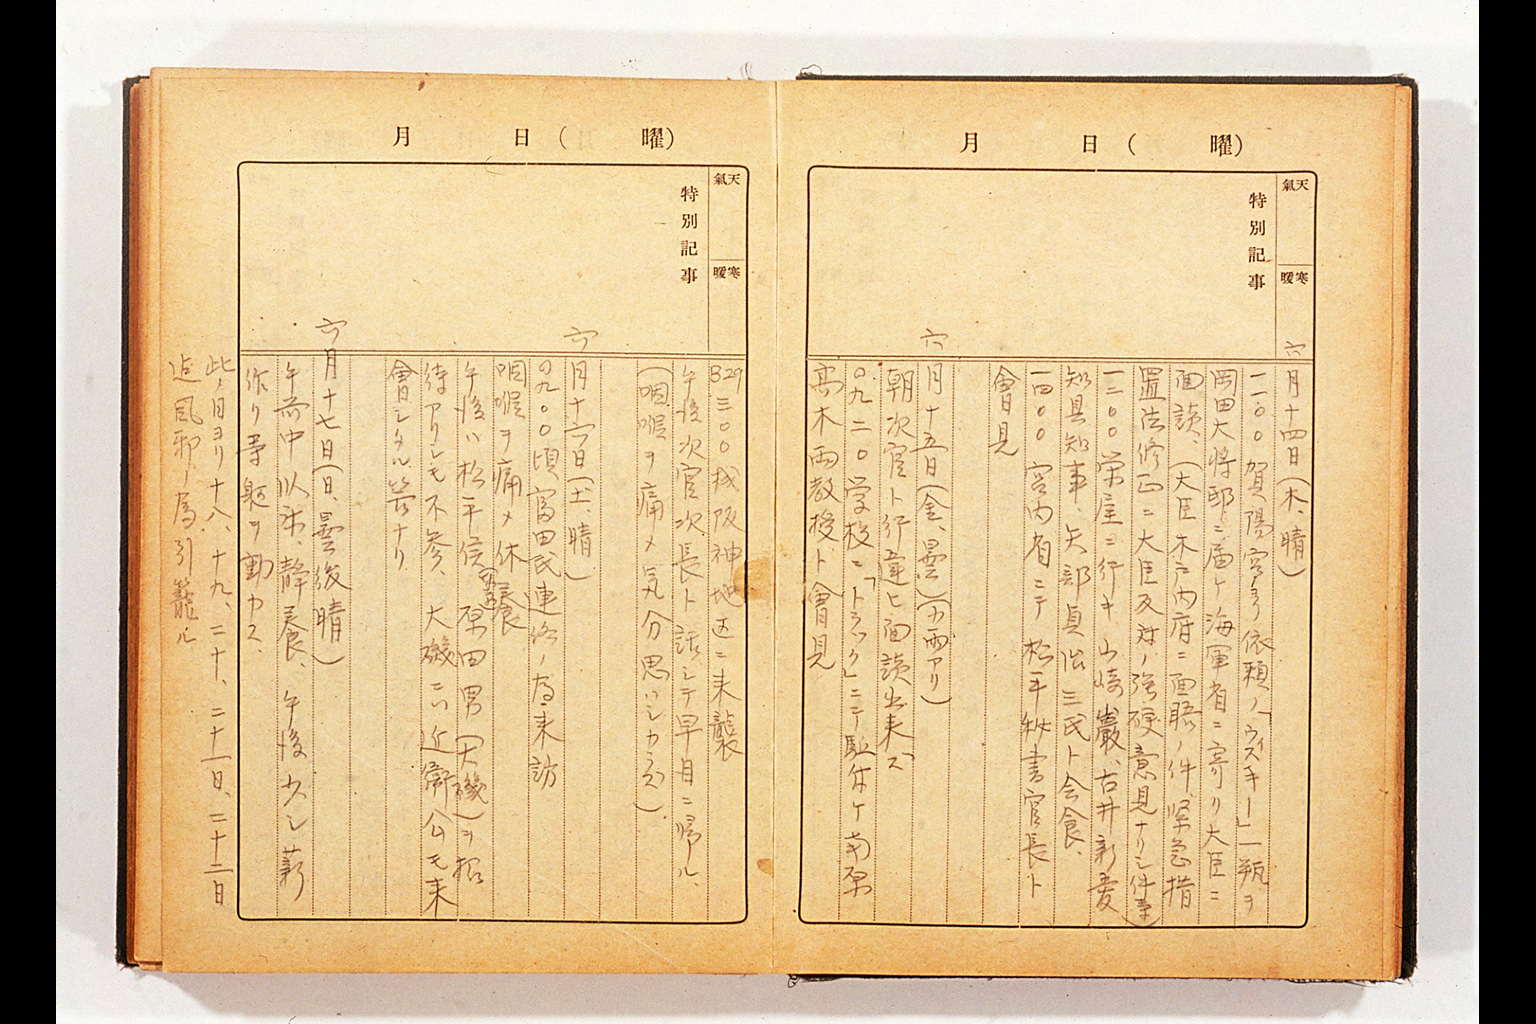 月 日(曜)
天氣
寒暖
特別記事
六月十四日(木、晴)
一一〇〇賀陽宮ヨリ依頼ノ「ウイスキー」一瓶ヲ
岡田大将邸ニ届ケ海軍省ニ寄リ大臣ニ
面談、(大臣木戸内府ニ面晤ノ件、緊急措
置法修正ニ大臣反対ノ強硬意見ナリシ件等)
一二〇〇栄屋ニ行キ山崎巌、古井新妻
知县知事、矢部貞治三氏ト会食、
一四〇〇宮内省ニテ松平秘書官長ト
會見
六月十五日(金、曇)(小雨アリ)
朝次官ト行違ヒ面談出来ズ
〇九二〇学校ニ「トラック」ニテ駈付ケ南原
高木両教授ト會見
月 日(曜)
天氣
寒暖
特別記事
B29三〇〇機阪神地区ニ来襲
午後次官次長ト話シテ早目ニ帰ル、
(咽喉ヲ痛メ気分思ハシカラズ)
六月十六日(土、晴)
〇九〇〇頃富田氏連絡ノ為来訪
咽喉ヲ痛メ休養
午後ハ松平侯 原田男(大磯)ヲ招
待アリシモ不参、大磯ニハ近衛公モ来
會シタル筈ナリ
六月十七日(日、曇後晴)
午前中臥床、静養、午後少シ薪
作リ等躯ヲ動カス、
此ノ日ヨリ十八、十九、二十、二十一日、二十二日
迄風邪ノ為引籠ル